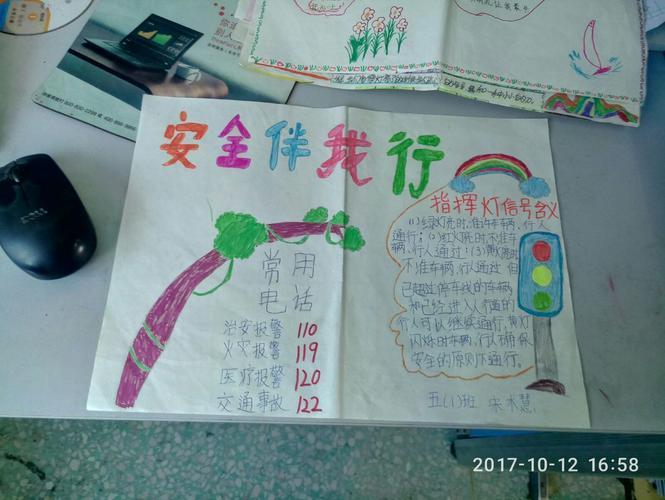 安全伴我行
指挥灯信号含义
(1)绿灯亮时,准许车辆、行人
通行;(2)红灯亮时,不准车
辆、行人通过;(3)黄灯亮时
不准车辆、行人通过,但
已超过停车线的车辆
和已经进入人行道的
行人可以继续通行,黄灯
闪烁时车辆、行人确保
安全的原则下通行。
常用
电话
治安报警 110
火灾报警 119
医疗报警 120
交通事故 122
五(1)班 宋木慧
2017-10-12 16:58